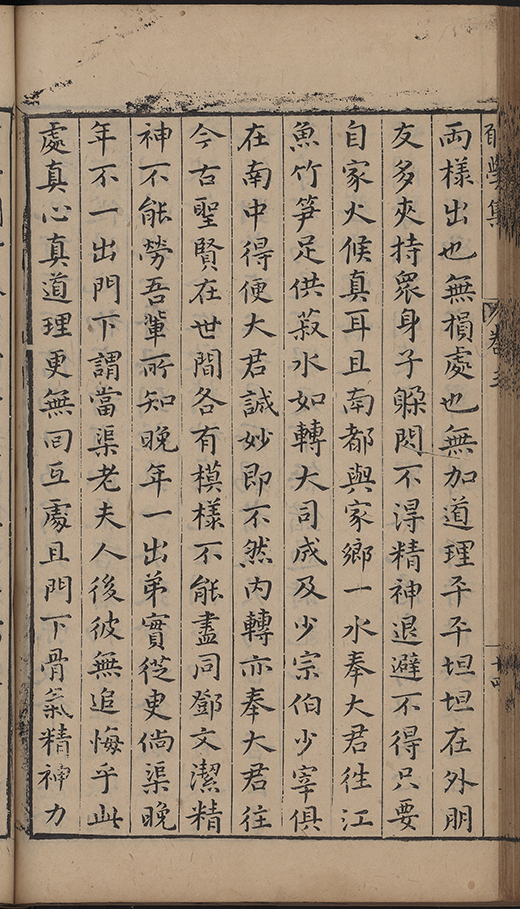 學集
卷
十四
兩様出也無損處也無加道理平平坦坦在外朋
友多夾持眾身子躱閃不得精神退避不得只要
自家火候真耳且南都與家鄉一水奉大君徃江
魚竹笋足供菽水如轉大司成及少宗伯少宰俱
在南中得便大君誠妙即不然内轉亦奉大君徃
今古聖賢在世間各有模樣不能盡同鄧文潔精
神不能勞吾輩所知晚年一出弟實從臾倘渠晚
年不一出門下謂當渠老夫人後彼無追悔乎此
處真心真道理更無回互處且門下骨氣精神力